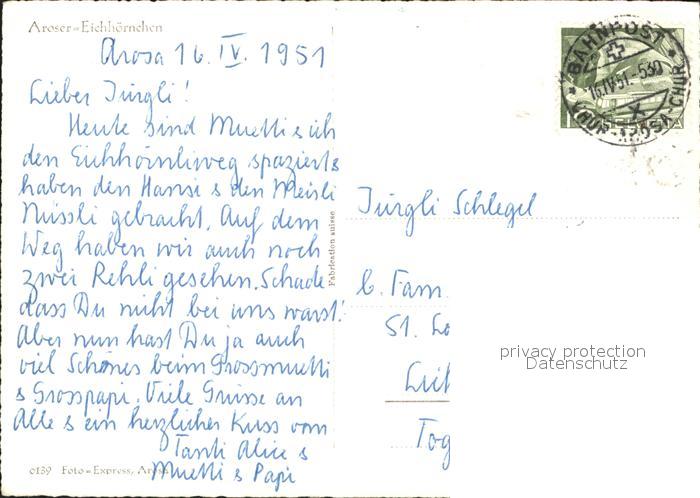 Aroser=Eichhörnchen
Arosa 16. IV. 1951
Lieber Jürgli!
Heute sind Muetti & ich
den Eichhörnliweg spaziert &
haben den Hansi & den Meisli
Nüssli gebracht. Auf dem
Weg haben wir auch noch
zwei Rehli gesehen. Schade
dass Du nicht bei uns warst!
Aber nun hast Du ja auch
viel Schönes beim Grossmuetti
& Grosspapi. Viele Grüsse an
Alle & ein herzlicher Kuss vom
Tanti Alice &
Muetti & Papi
0139 Foto=Express, Arosa
Fabrication suisse
BAHNPOST
16.IV.51.-530
X
CHUR-AROSA-CHUR
Jürgli Schlegel
b. Fam.
St. Lo
Lich
Tog
privacy protection
Datenschutz